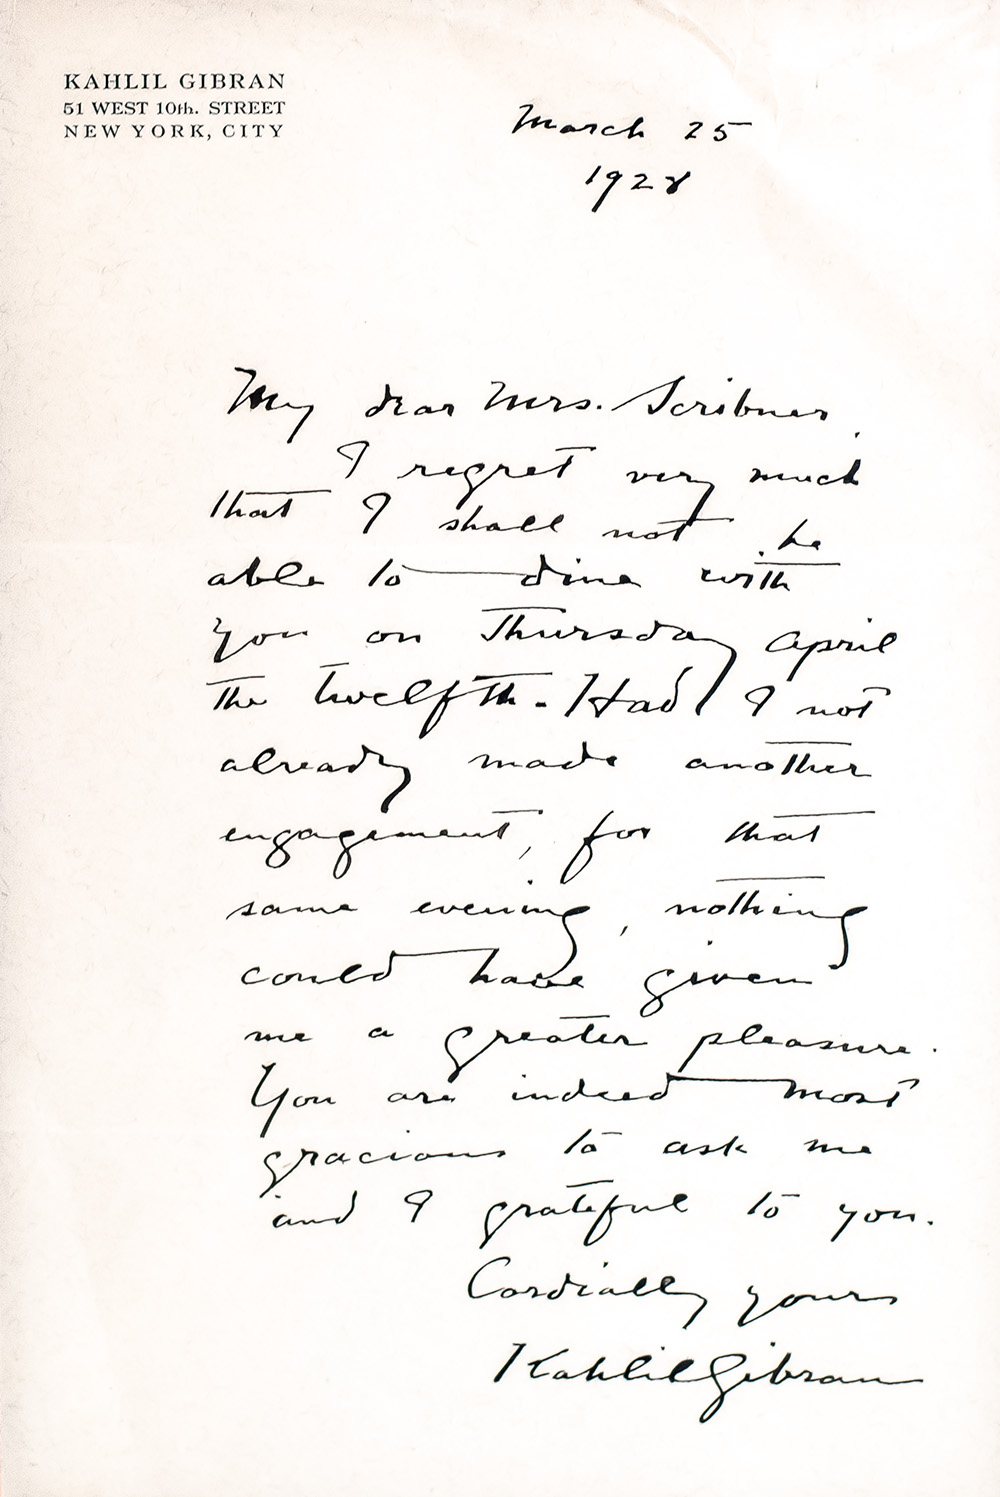 KAHLIL GIBRAN
51 WEST 10th. STREET
NEW YORK, CITY
March 25
1928
My dear Mrs. Scribner,
I regret very much
that I shall not be
able to dine with
you on Thursday April
the twelfth. Had I not
already made another
engagement, for that
same evening, nothing
could have given
me a greater pleasure.
You are indeed most
gracious to ask me
and I grateful to you.
Cordially yours
Kahlil Gibran